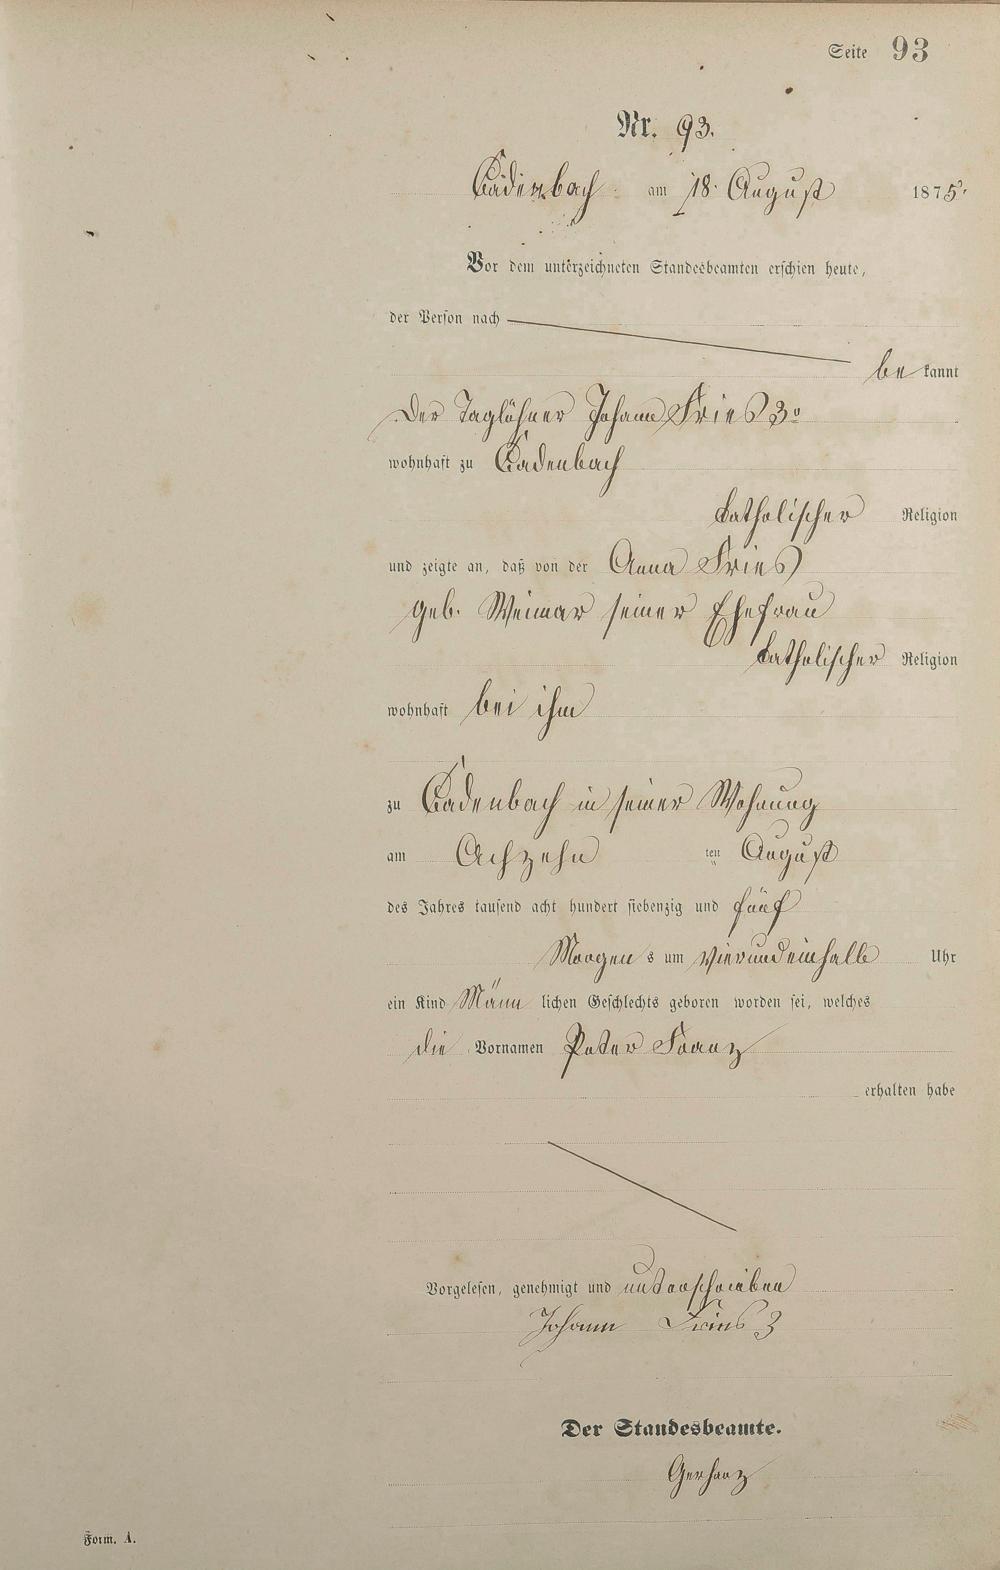 Seite 93
Nr. 93.
Cadenbach am 18. August 1875.
Vor dem unterzeichneten Standesbeamten erschien heute,
der Person nach
bekannt
Der Taglöhner Johann Fries 3º
wohnhaft zu Cadenbach
katholischer Religion
und zeigte an, daß von der Anna Fries
geb. Weimar seiner Ehefrau
katholischer Religion
wohnhaft bei ihm
zu Cadenbach in seiner Wohnung
am Achzehn ten August
des Jahres tausend acht hundert siebenzig und fünf
Morgens um vierundeinhalb Uhr
ein Kind Männlichen Geschlechts geboren worden sei, welches
die Vornamen Peter Franz
erhalten habe
Vorgelesen, genehmigt und unterschrieben
Johann Fries 3
Der Standesbeamte.
Gerharz
Form. A.